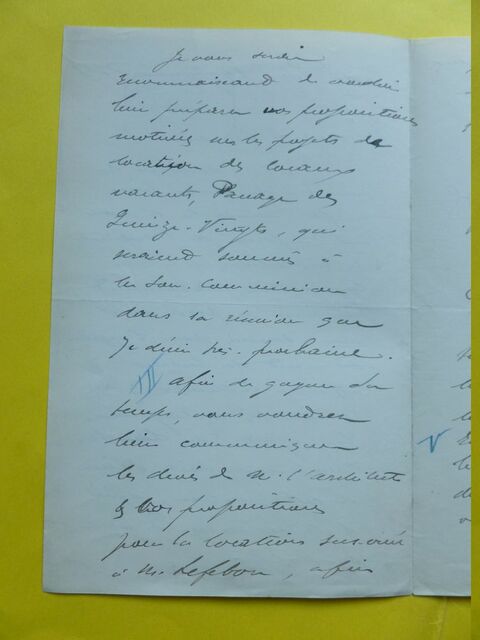 Je vous serai
reconnaissant de vouloir
bien préparer vos propositions
motivées sur les projets de
location des locaux
vacants, Passage des
Quinze-Vingts, qui
seraient soumis à
la Sous-Commission
dans sa réunion que
je désire très prochaine.
III afin de gagner du
temps, vous voudrez
bien communiquer
les devis de M. l'architecte
& vos propositions
pour la location sus-visée
à M. Lefebvre, afin
V